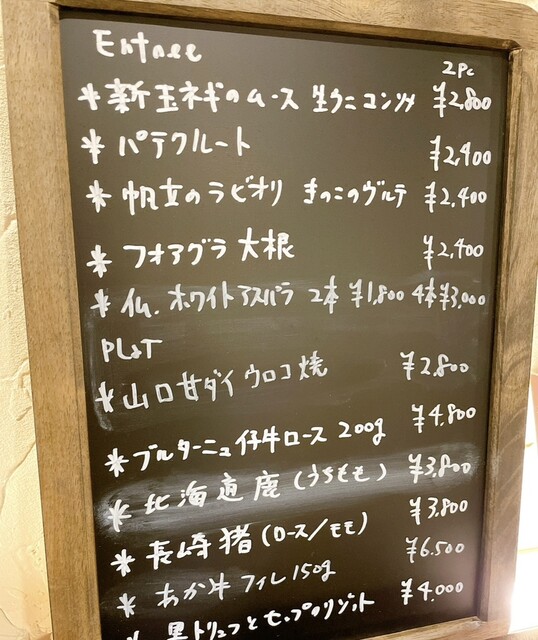 Entree
2Pc
*新玉ネギのムース 生ウニ コンソメ ¥2,800
*パテクルート ¥2,400
*帆立のラビオリ きのこのヴルテ ¥2,400
*フォアグラ 大根 ¥2,400
*仏.ホワイトアスパラ 2本 ¥1,800 4本 ¥3,000
PLaT
*山口甘ダイ ウロコ焼 ¥2,800
*ブルターニュ仔牛ロース 200g ¥4,800
*北海道鹿(うちもも) ¥3,800
*長崎猪(ロース/モモ) ¥3,800
*あか牛フィレ150g ¥6,500
*黒トリュフとセップのリゾット ¥4,000